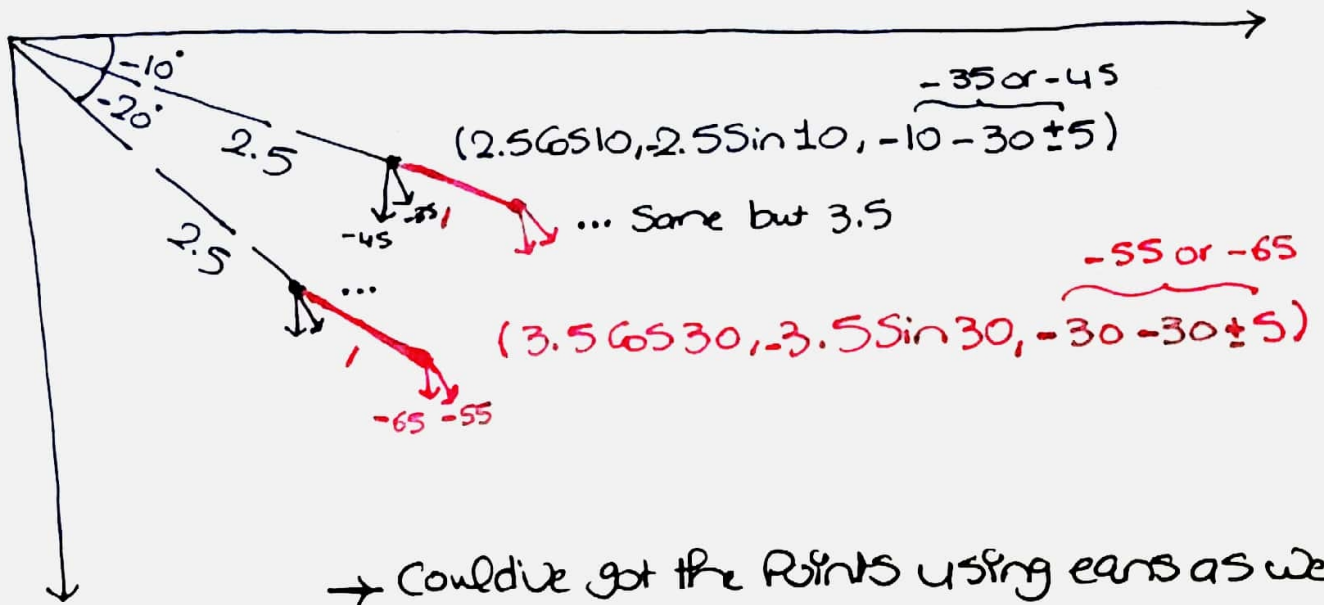 -10°
-20°
-35 or -45
2.5
(2.5Cos10,-2.5Sin10, -10-30±5)
-45
-35
1
... Same but 3.5
2.5
...
-55 or -65
(3.5Cos30,-3.5Sin30, -30-30±5)
1
-65 -55
→ Could've got the Points using eqns as we